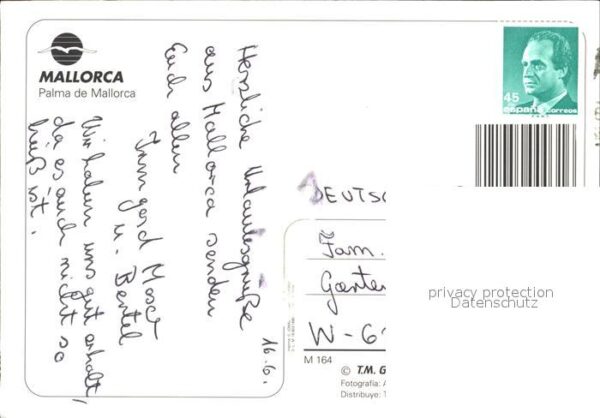 MALLORCA
Palma de Mallorca
16.6.
Herzliche Urlaubsgrüße
aus Mallorca senden
Euch allen
Irmgard Moser
u. Bertel
Wir haben uns gut erholt,
da es auch nicht so
heiß ist.
45
españa correos
DEUTSC
Fam.
Garten
W-6
privacy protection
Datenschutz
M 164
© T.M. G
Fotografía: A
Distribuye: 1